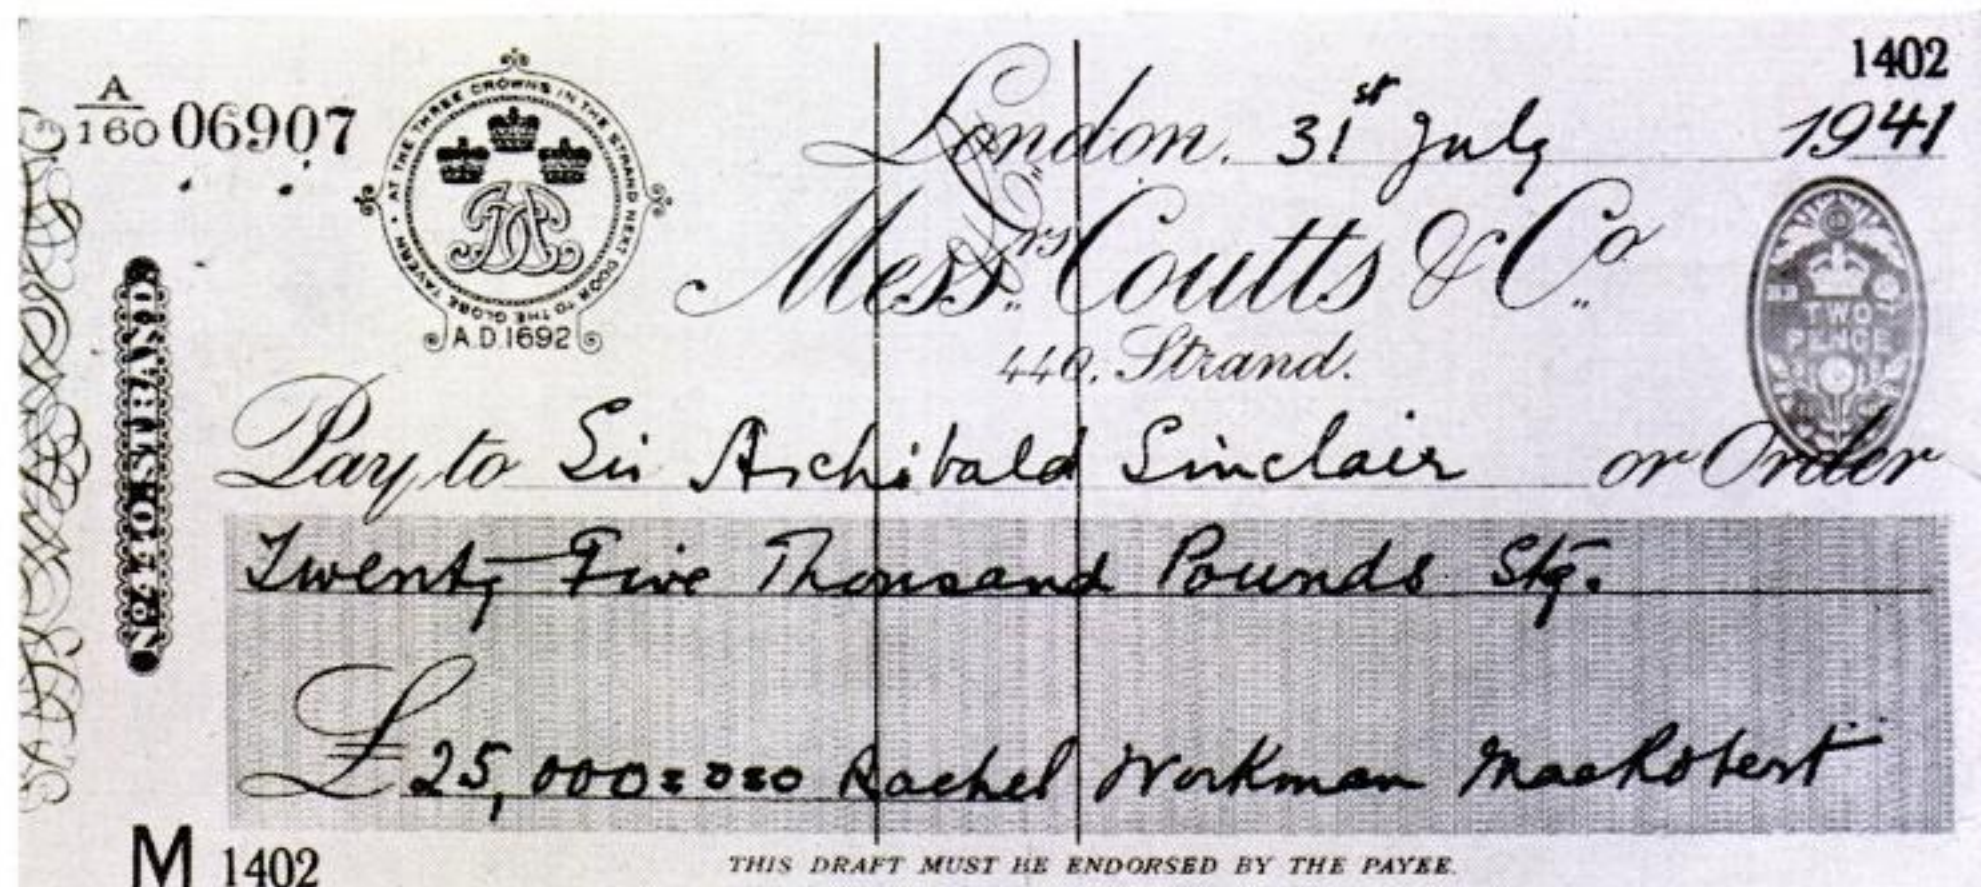 1402
A
160 06907
AT THE THREE CROWNS IN THE STRAND NEXT DOOR TO THE GLOBE TAVERN •
A.D. 1692
London. 31st July 1941
Messrs Coutts & Co
440, Strand.
TWO
PENCE
Pay to Sir Archibald Sinclair or Order
Twenty Five Thousand Pounds Stg.
£25,000=0=0 Rachel Workman MacRobert
M 1402
THIS DRAFT MUST BE ENDORSED BY THE PAYEE.